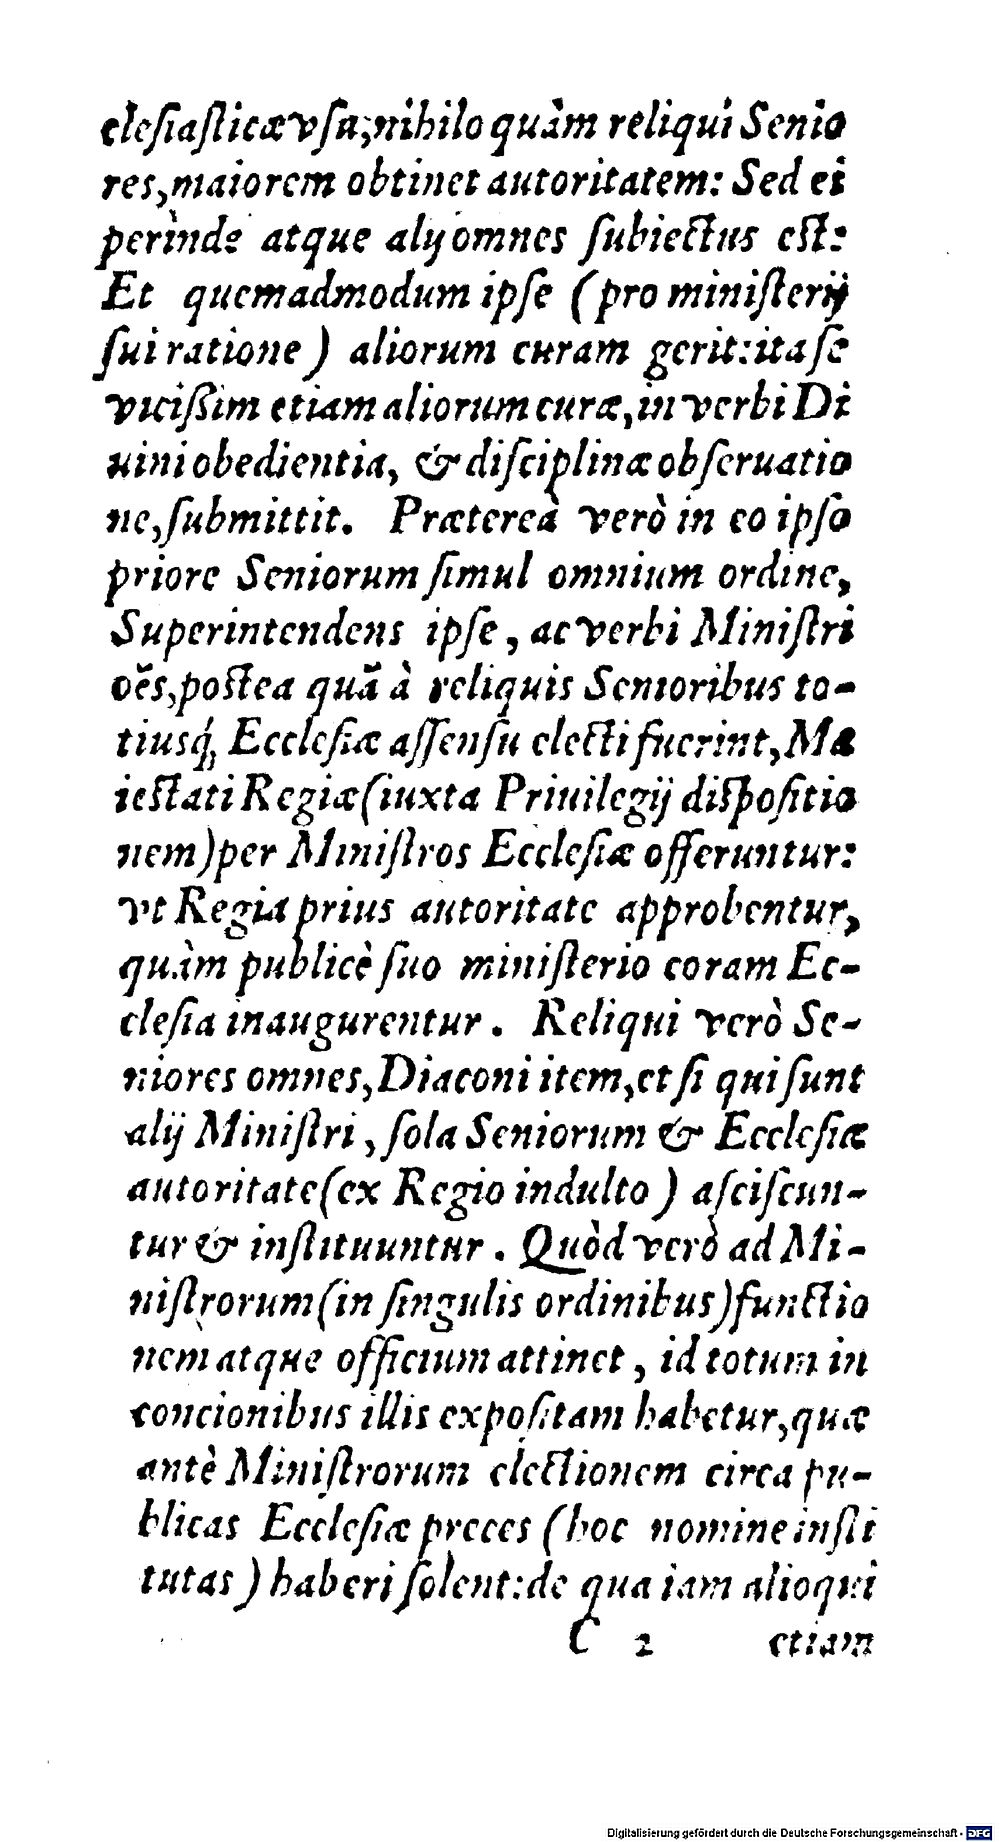 cleſiaſticæ vſu, nihilo quàm reliqui Senio
res, maiorem obtinet autoritatem: Sed ei
perìnde atque alij omnes ſubiectus eſt:
Et quemadmodum ipſe (pro miniſterij
ſui ratione) aliorum curam gerit: ita ſe
viciſsim etiam aliorum curæ, in verbi Di
uini obedientia, & diſciplinæ obſeruatio
ne, ſubmittit. Præterea verò in eo ipſo
priore Seniorum ſimul omnium ordine,
Superintendens ipſe, ac verbi Miniſtri
oẽs, poſtea quã à reliquis Senioribus to-
tiusq́ꝫ Eccleſiæ aſſenſu electi fuerint, Ma
ieſtati Regiæ (iuxta Priuilegij diſpoſitio
nem) per Miniſtros Eccleſiæ offeruntur:
vt Regia prius autoritate approbentur,
quàm publicè ſuo miniſterio coram Ec-
cleſia inaugurentur. Reliqui verò Se-
niores omnes, Diaconi item, et ſi qui ſunt
alij Miniſtri, ſola Seniorum & Eccleſiæ
autoritate (ex Regio indulto) aſciſcun-
tur & inſtituuntur. Quòd verò ad Mi-
niſtrorum (in ſingulis ordinibus) functio
nem atque officium attinet, id totum in
concionibus illis expoſitam habetur, quæ
antè Miniſtrorum electionem circa pu-
blicas Eccleſiæ preces (hoc nomine inſti
tutas) haberi ſolent: de qua iam alioqui
C 2 etiam
Digitalisierung gefördert durch die Deutsche Forschungsgemeinschaft - DFG